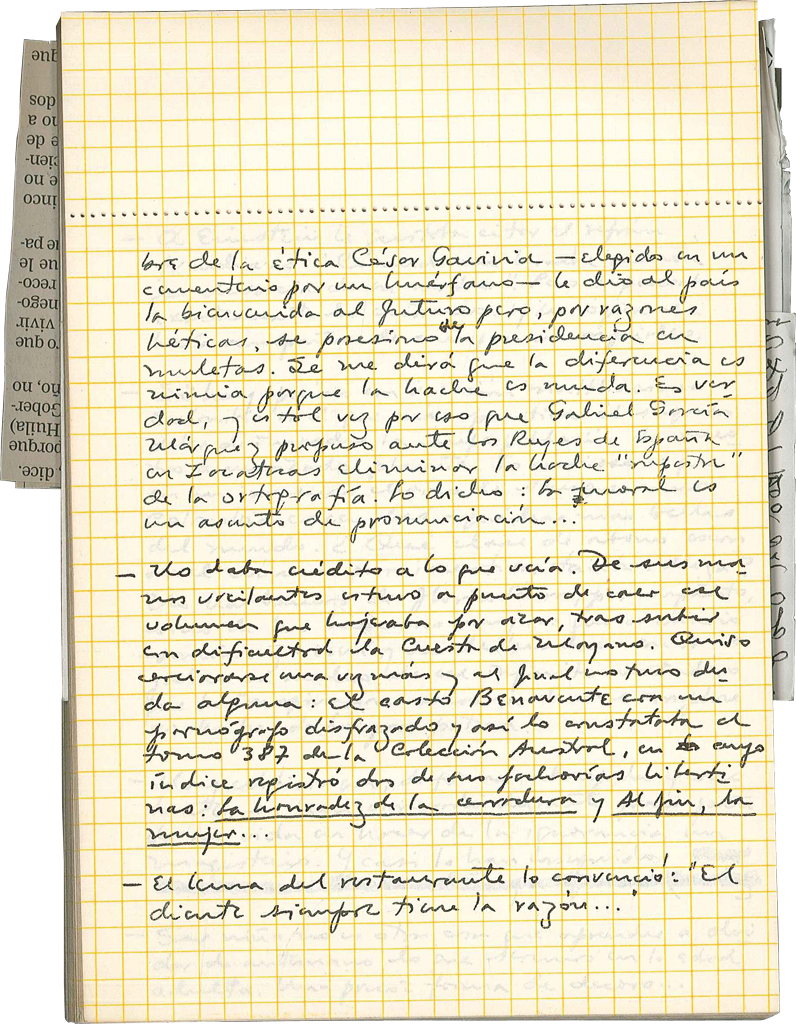 bre de la ética César Gaviria — elegido en un
cementerio por un huérfano — le dio al país
la bienvenida al futuro pero, por razones
héticas, se posesionó de la presidencia en
muletas. Se me dirá que la diferencia es
nimia porque la hache es muda. Es ver
dad, y es tal vez por eso que Gabriel García
Márquez propuso ante los Reyes de España
en Zacatecas eliminar la hache "rupestre"
de la ortografía. Lo dicho: la moral es
un asunto de pronunciación...
— No daba crédito a lo que veía. De sus ma-
nos vacilantes estuvo a punto de caer ese
volumen que hojeaba por azar, tras subir
con dificultad la Cuesta de Moyano. Quiso
cerciorarse una vez más y al final no tuvo du-
da alguna: el casto Benavente era un
pornógrafo disfrazado y así lo constataba el
tomo 387 de la Colección Austral, en cuyo
índice registró dos de sus fechorías liberti-
nas: La honradez de la cerradura y Al fin, la
mujer...
— El lema del restaurante lo convenció: "El
cliente siempre tiene la razón..."
que
dos
no a
e de
cien-
e no
inco
ue pa-
ue le
reco-
nego-
vivir
ro que
ño, no
Gober-
Huila)
porque
, dice.